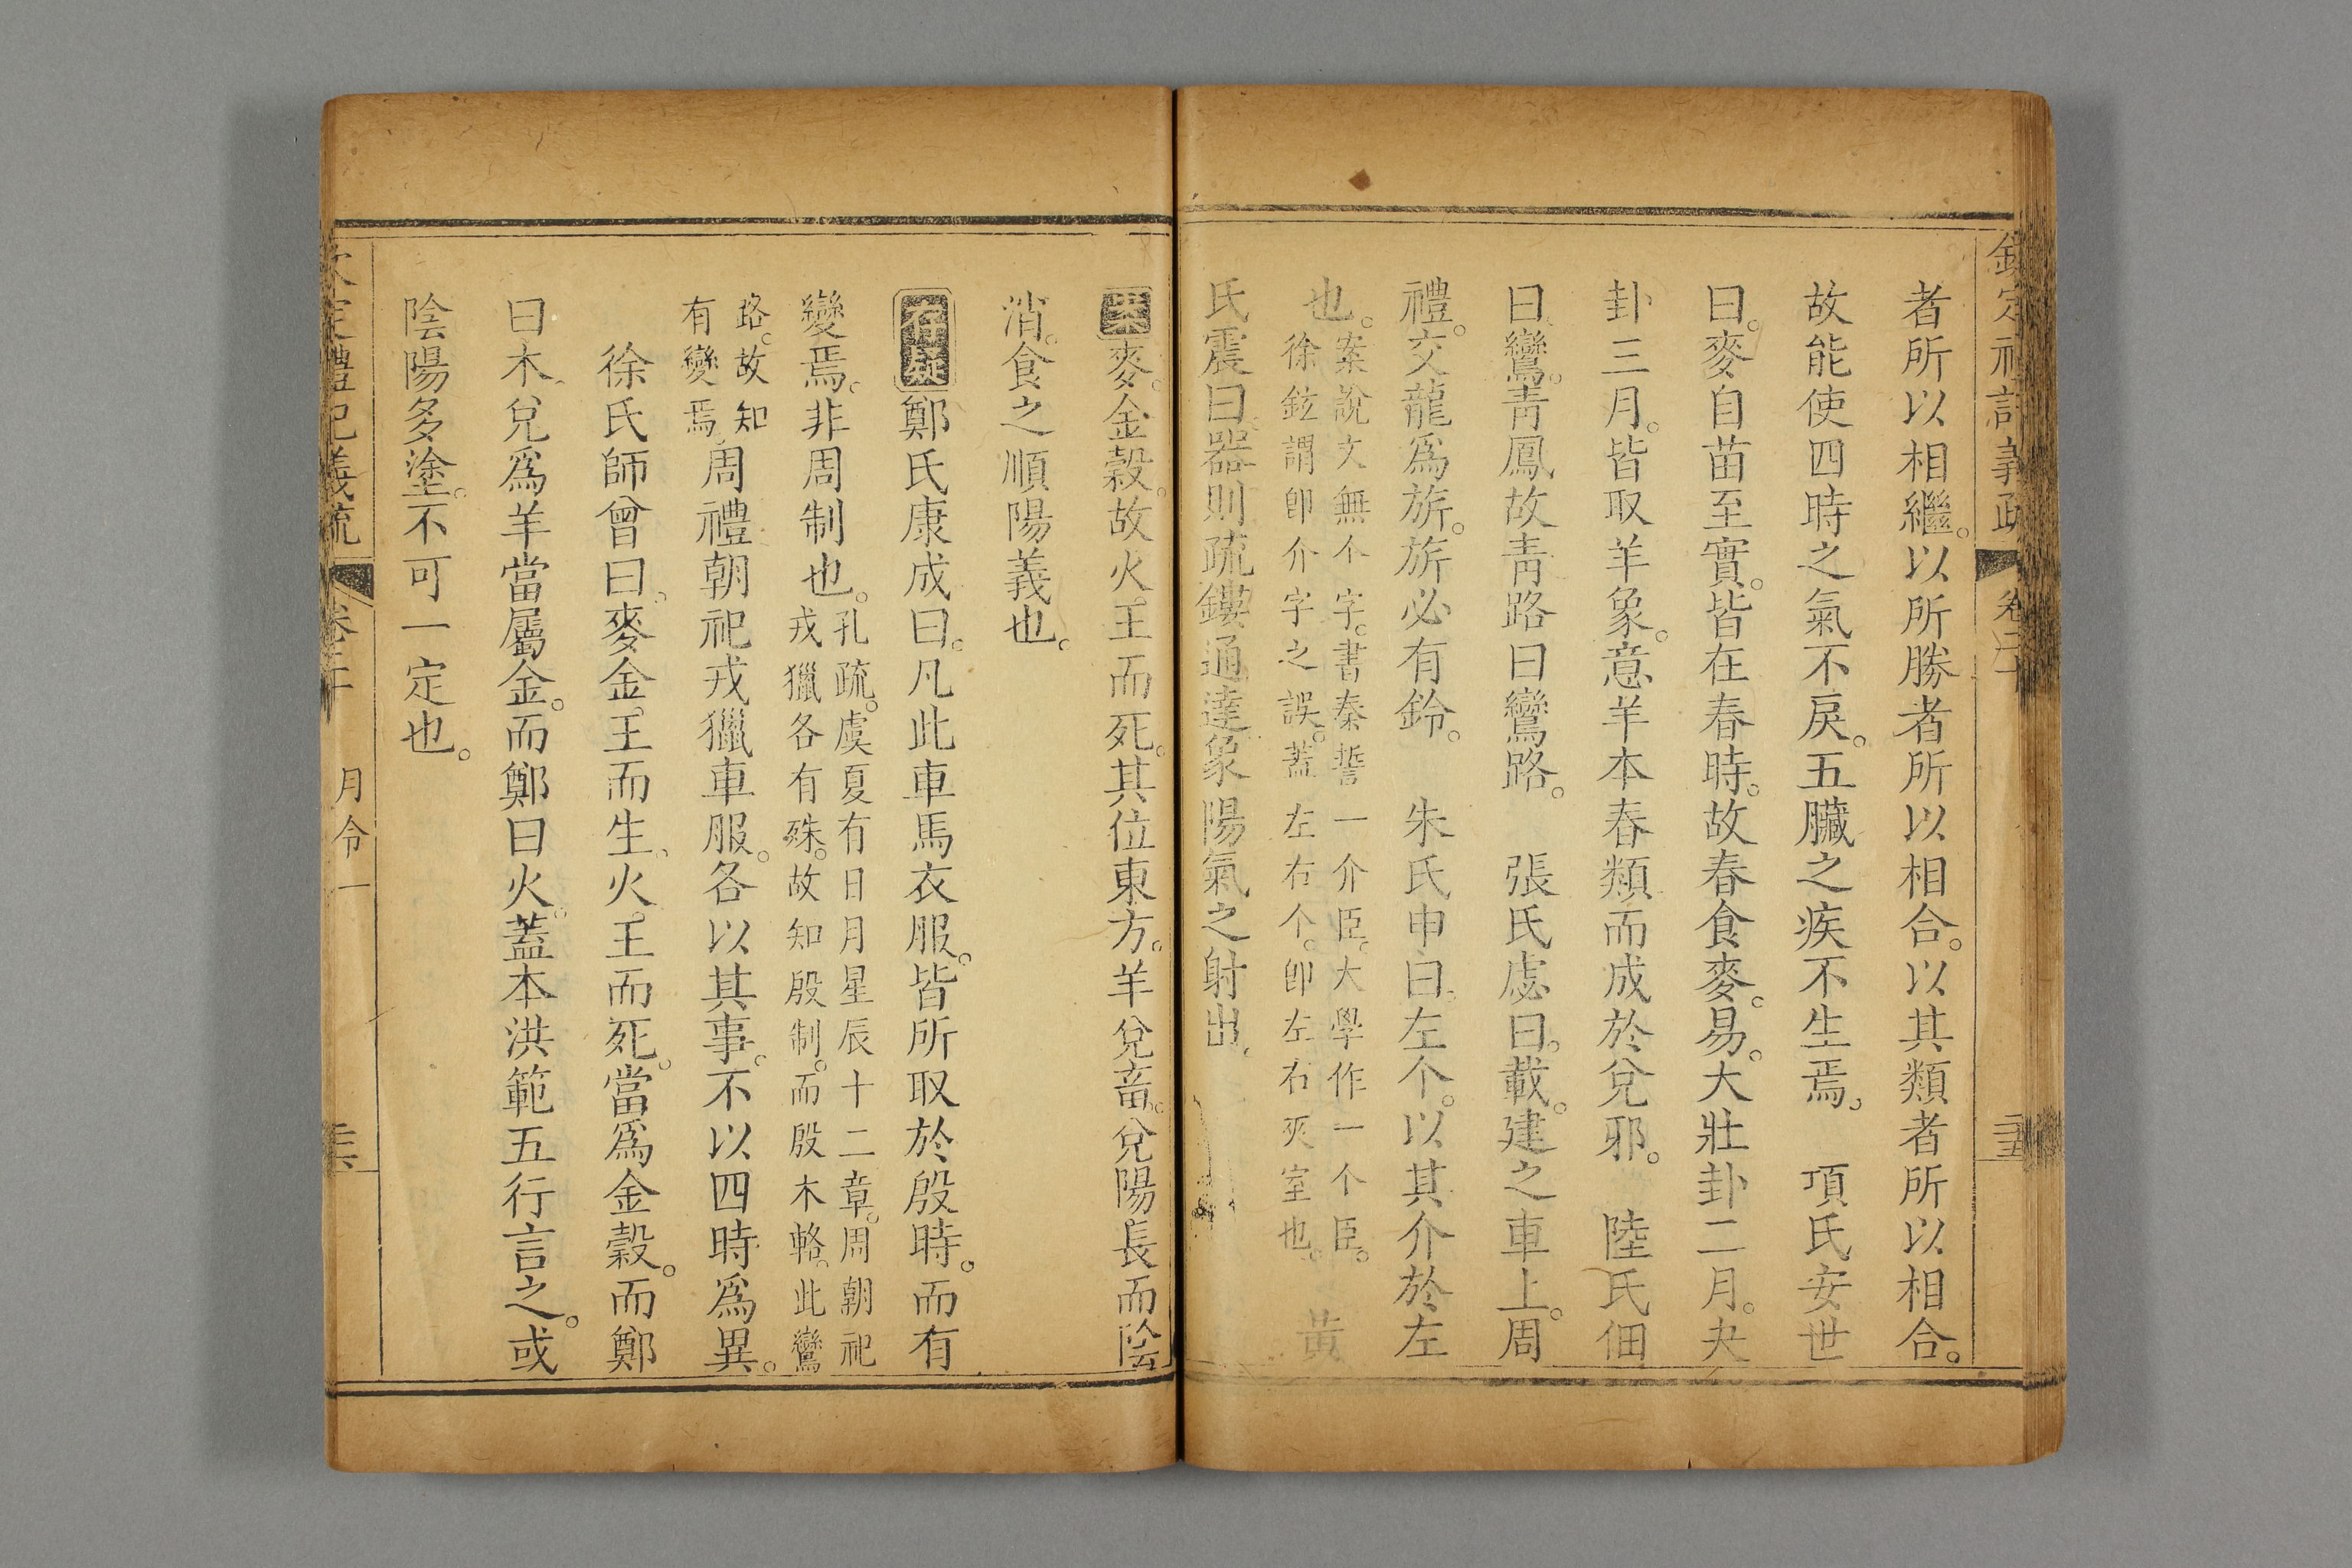 欽定禮記義疏 卷二十 二五
者所以相繼。以所勝者所以相合。以其類者所以相合。
故能使四時之氣不戾。五臟之疾不生焉。 項氏安世
曰。麥自苗至實。皆在春時。故春食麥。易。大壯卦二月。夬
卦三月。皆取羊象。意羊本春類而成於兌邪。 陸氏佃
曰。鸞。靑鳳故靑路曰鸞路。 張氏虙曰。載。建之車上。周
禮。交龍爲旂。旂必有鈴。 朱氏申曰。左个。以其介於左
也。案說文無个字。書秦誓一介臣。大學作一个臣。
徐鉉謂卽介字之誤。蓋左右个。卽左右夾室也。 黃
氏震曰。器則疏鏤通達。象陽氣之射出。
案麥。金穀。故火王而死。其位東方。羊兌畜。兌陽長而陰
消。食之順陽義也。
存疑鄭氏康成曰。凡此車馬衣服。皆所取於殷時。而有
變焉。非周制也。孔疏。虞夏有日月星辰十二章。周朝祀
戎獵各有殊。故知殷制。而殷木輅。此鸞
路。故知
有變焉。周禮朝祀戎獵車服。各以其事。不以四時爲異。
徐氏師曾曰。麥金。王而生。火。王而死。當爲金穀。而鄭
曰木。兌爲羊當屬金。而鄭曰火。蓋本洪範五行言之。或
陰陽多塗。不可一定也。
欽定禮記義疏 卷二十 月令一 二六